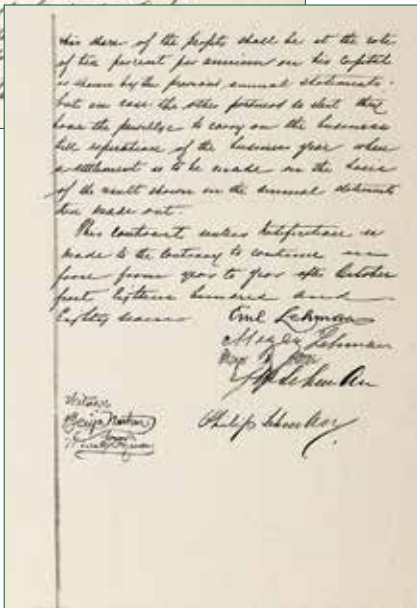 his share of the profits shall be at the rate
of ten percent per annum on his capital
as shown by the previous annual statements.
but in case the other partners so elect they
have the privilege to carry on the business
till expiration of the business year when
a settlement is to be made on the basis
of the result shown on the annual statement
then made out.
This contract unless notification is
made to the contrary to continue in
force from year to year after October
first Eighteen hundred and
Eighty seven
Emil Lehman
Meyer Lehman
Lehman
Witness
Philip Lehman